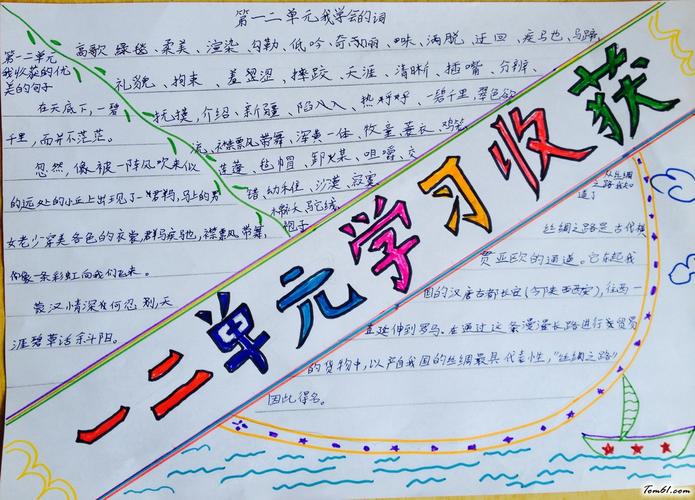 第一二单元我学会的词
高歌、绿毯、柔美、渲染、勾勒、低吟、奇丽、洒脱、迂回、疾马也、马蹄
礼貌、拘束、羞涩、摔跤、天涯、清晰、插嘴、分辨、
抚摸、介绍、新疆、陷入、热乎乎、一碧千里、翠色欲
流、襟飘带舞、浑为一体、牧童、蓑衣、鸡笼
莲蓬、毡帽、卸煤、咀嚼、交
错、幼稚、沙漠、寂寞
棉袄、驼绒
袍子
第一二单元
我收获的优
美的句子
在天底下，一碧
千里，而并不茫茫。
忽然，像被一阵风吹来似
的远处的小丘上出现了一群马，马上的男
女老少穿着各色的衣裳，群马疾驰，襟飘带舞，
像一条彩虹向我们飞来。
蒙汉情深何忍别，天
涯碧草话斜阳。
一二单元学习收获
从丝绸
之路我知
道了
丝绸之路是古代横
贯亚欧的通道。它东起我
国的汉唐古都长安（今陕西西安），往西一
直延伸到罗马。在通过这条漫漫长路进行贸易
的货物中，以产自我国的丝绸最具代表性，“丝绸之路”
因此得名。
Tom61.com